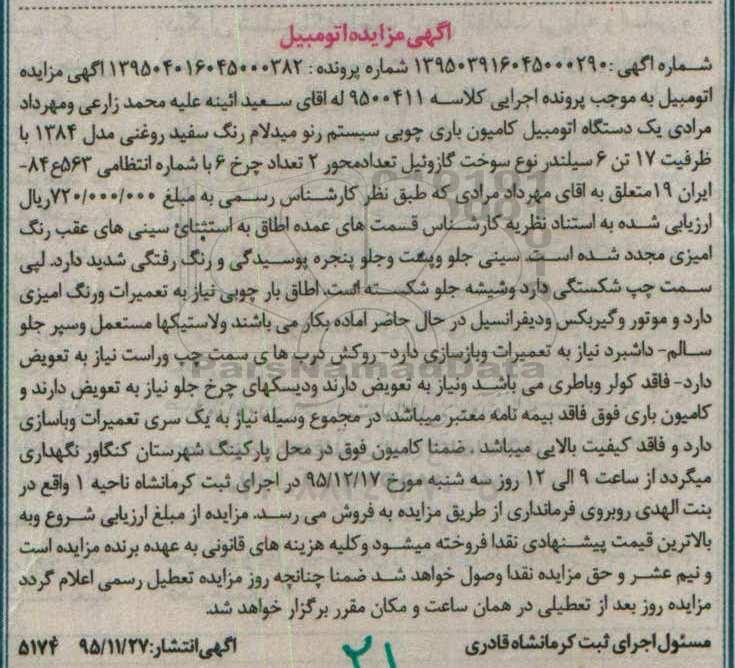 آگهی مزایده اتومبیل
شماره آگهی :۱۳۹۵۰۳۹۱۶۰۴۵۰۰۰۲۹۰ شماره پرونده : ۱۳۹۵۰۴۰۱۶۰۴۵۰۰۰۳۸۲ آگهی مزایده
اتومبیل به موجب پرونده اجرایی کلاسه ۹۵۰۰۴۱۱ له اقای سعید ائینه علیه محمد زارعی ومهرداد
مرادی یک دستگاه اتومبیل کامیون باری چوبی سیستم رنو میدلام رنگ سفید روغنی مدل ۱۳۸۴ با
ظرفیت ۱۷ تن ۶ سیلندر نوع سوخت گازوئیل تعدادمحور ۲ تعداد چرخ ۶ با شماره انتظامی ۵۶۳ع۸۴-
ایران ۱۹متعلق به اقای مهرداد مرادی که طبق نظر کارشناس رسمی به مبلغ ۷۲۰/۰۰۰/۰۰۰ریال
ارزیابی شده به استناد نظریه کارشناس قسمت های عمده اطاق به استثنائ سینی های عقب رنگ
امیزی مجدد شده است. سینی جلو وپشت وجلو پنجره پوسیدگی و رنگ رفتگی شدید دارد. لپی
سمت چپ شکستگی دارد وشیشه جلو شکسته است. اطاق بار چوبی نیاز به تعمیرات ورنگ امیزی
دارد و موتور وگیربکس ودیفرانسیل در حال حاضر اماده بکار می باشند ولاستیکها مستعمل وسپر جلو
سالم- داشبرد نیاز به تعمیرات وبازسازی دارد- روکش درب ها ی سمت چپ وراست نیاز به تعویض
دارد- فاقد کولر وباطری می باشد ونیاز به تعویض دارند ودیسکهای چرخ جلو نیاز به تعویض دارند و
کامیون باری فوق فاقد بیمه نامه معتبر میباشد. در مجموع وسیله نیاز به یک سری تعمیرات وباسازی
دارد و فاقد کیفیت بالایی میباشد . ضمنا کامیون فوق در محل پارکینگ شهرستان کنگاور نگهداری
میگردد از ساعت ۹ الی ۱۲ روز سه شنبه مورخ ۹۵/۱۲/۱۷ در اجرای ثبت کرمانشاه ناحیه ۱ واقع در
بنت الهدی روبروی فرمانداری از طریق مزایده به فروش می رسد. مزایده از مبلغ ارزیابی شروع وبه
بالاترین قیمت پیشنهادی نقدا فروخته میشود وکلیه هزینه های قانونی به عهده برنده مزایده است
و نیم عشر و حق مزایده نقدا وصول خواهد شد ضمنا چنانچه روز مزایده تعطیل رسمی اعلام گردد
مزایده روز بعد از تعطیلی در همان ساعت و مکان مقرر برگزار خواهد شد.
مسئول اجرای ثبت کرمانشاه قادری
آگهی انتشار: ۹۵/۱۱/۲۷
۵۱۷۴
۲۱
ParsNamadData